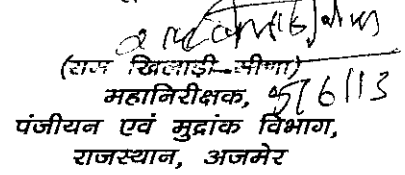 (राम खिलाड़ी मीणा)
महानिरीक्षक, 5/6/13
पंजीयन एवं मुद्रांक विभाग,
राजस्थान, अजमेर